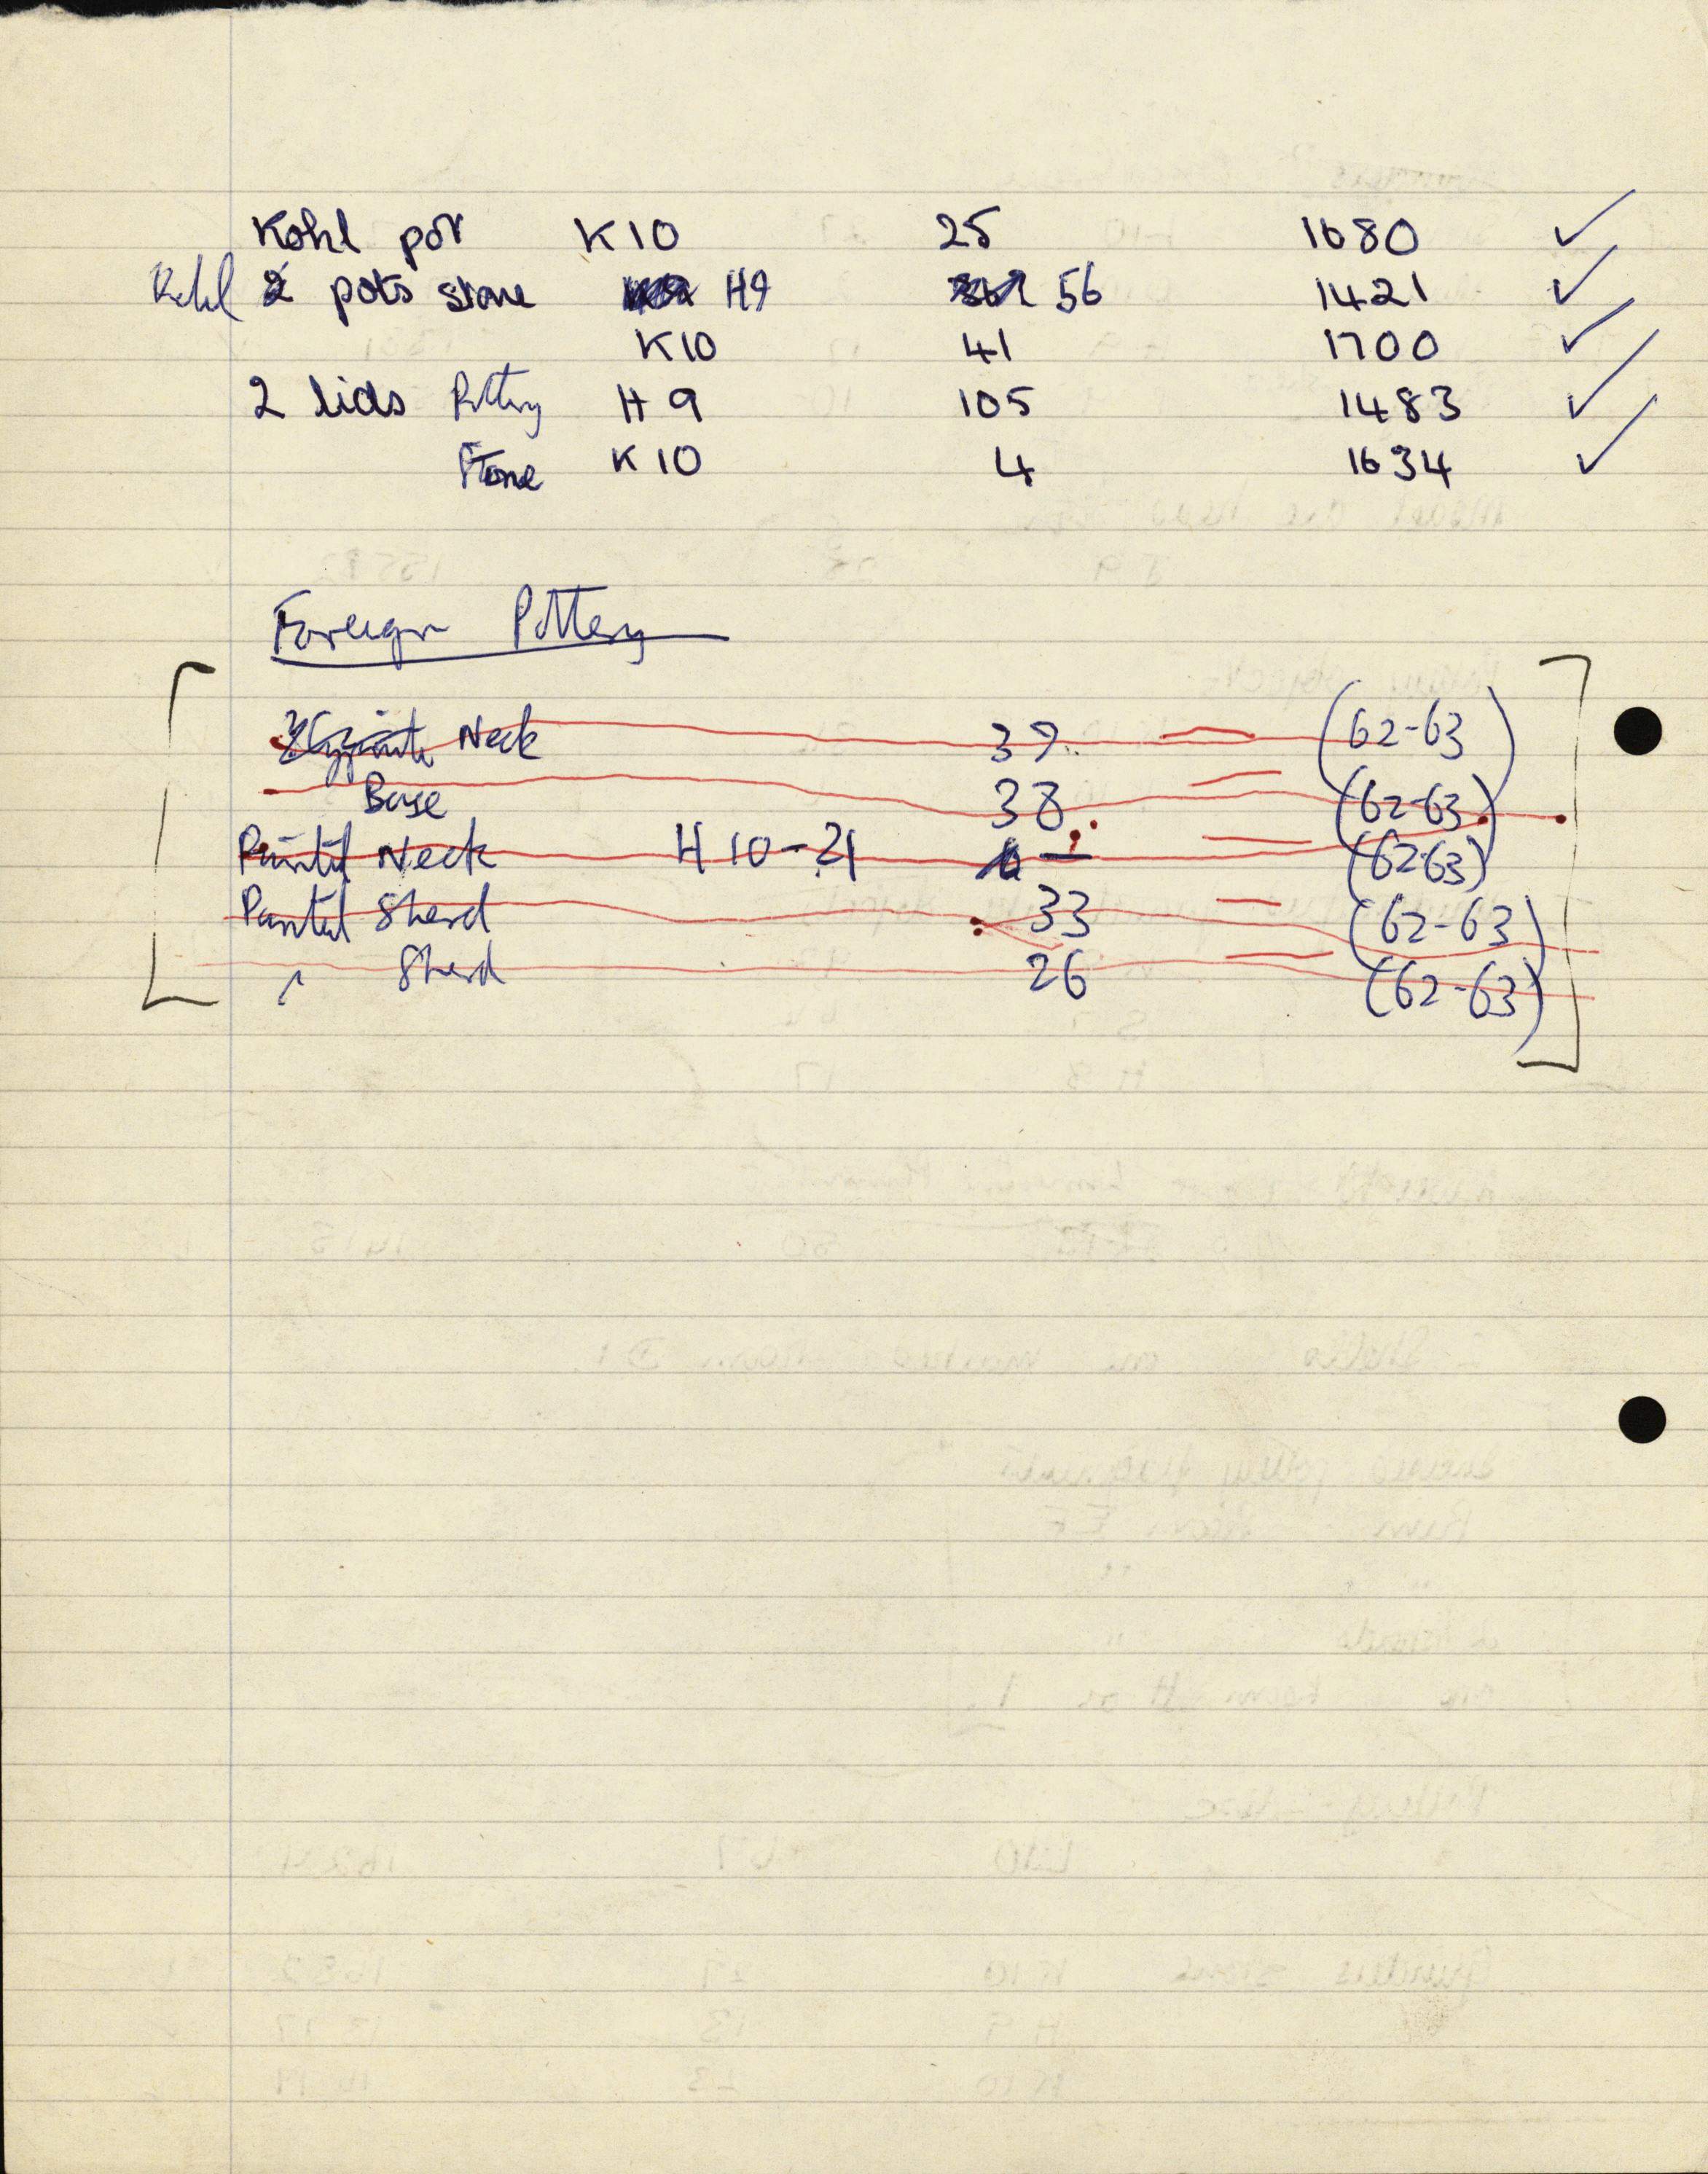 Kohl pot K10 25 1680 ✓
Kohl 2 pots stone H9 56 1421 ✓
K10 41 1700 ✓
2 lids Pottery H9 105 1483 ✓
Stone K10 4 1634 ✓
Foreign Pottery
Neck 37 — (62-63)
Base 38 — (62-63)
Painted Neck H10-21 — — (62-63)
Painted Sherd 33 — (62-63)
" Sherd 26 — (62-63)